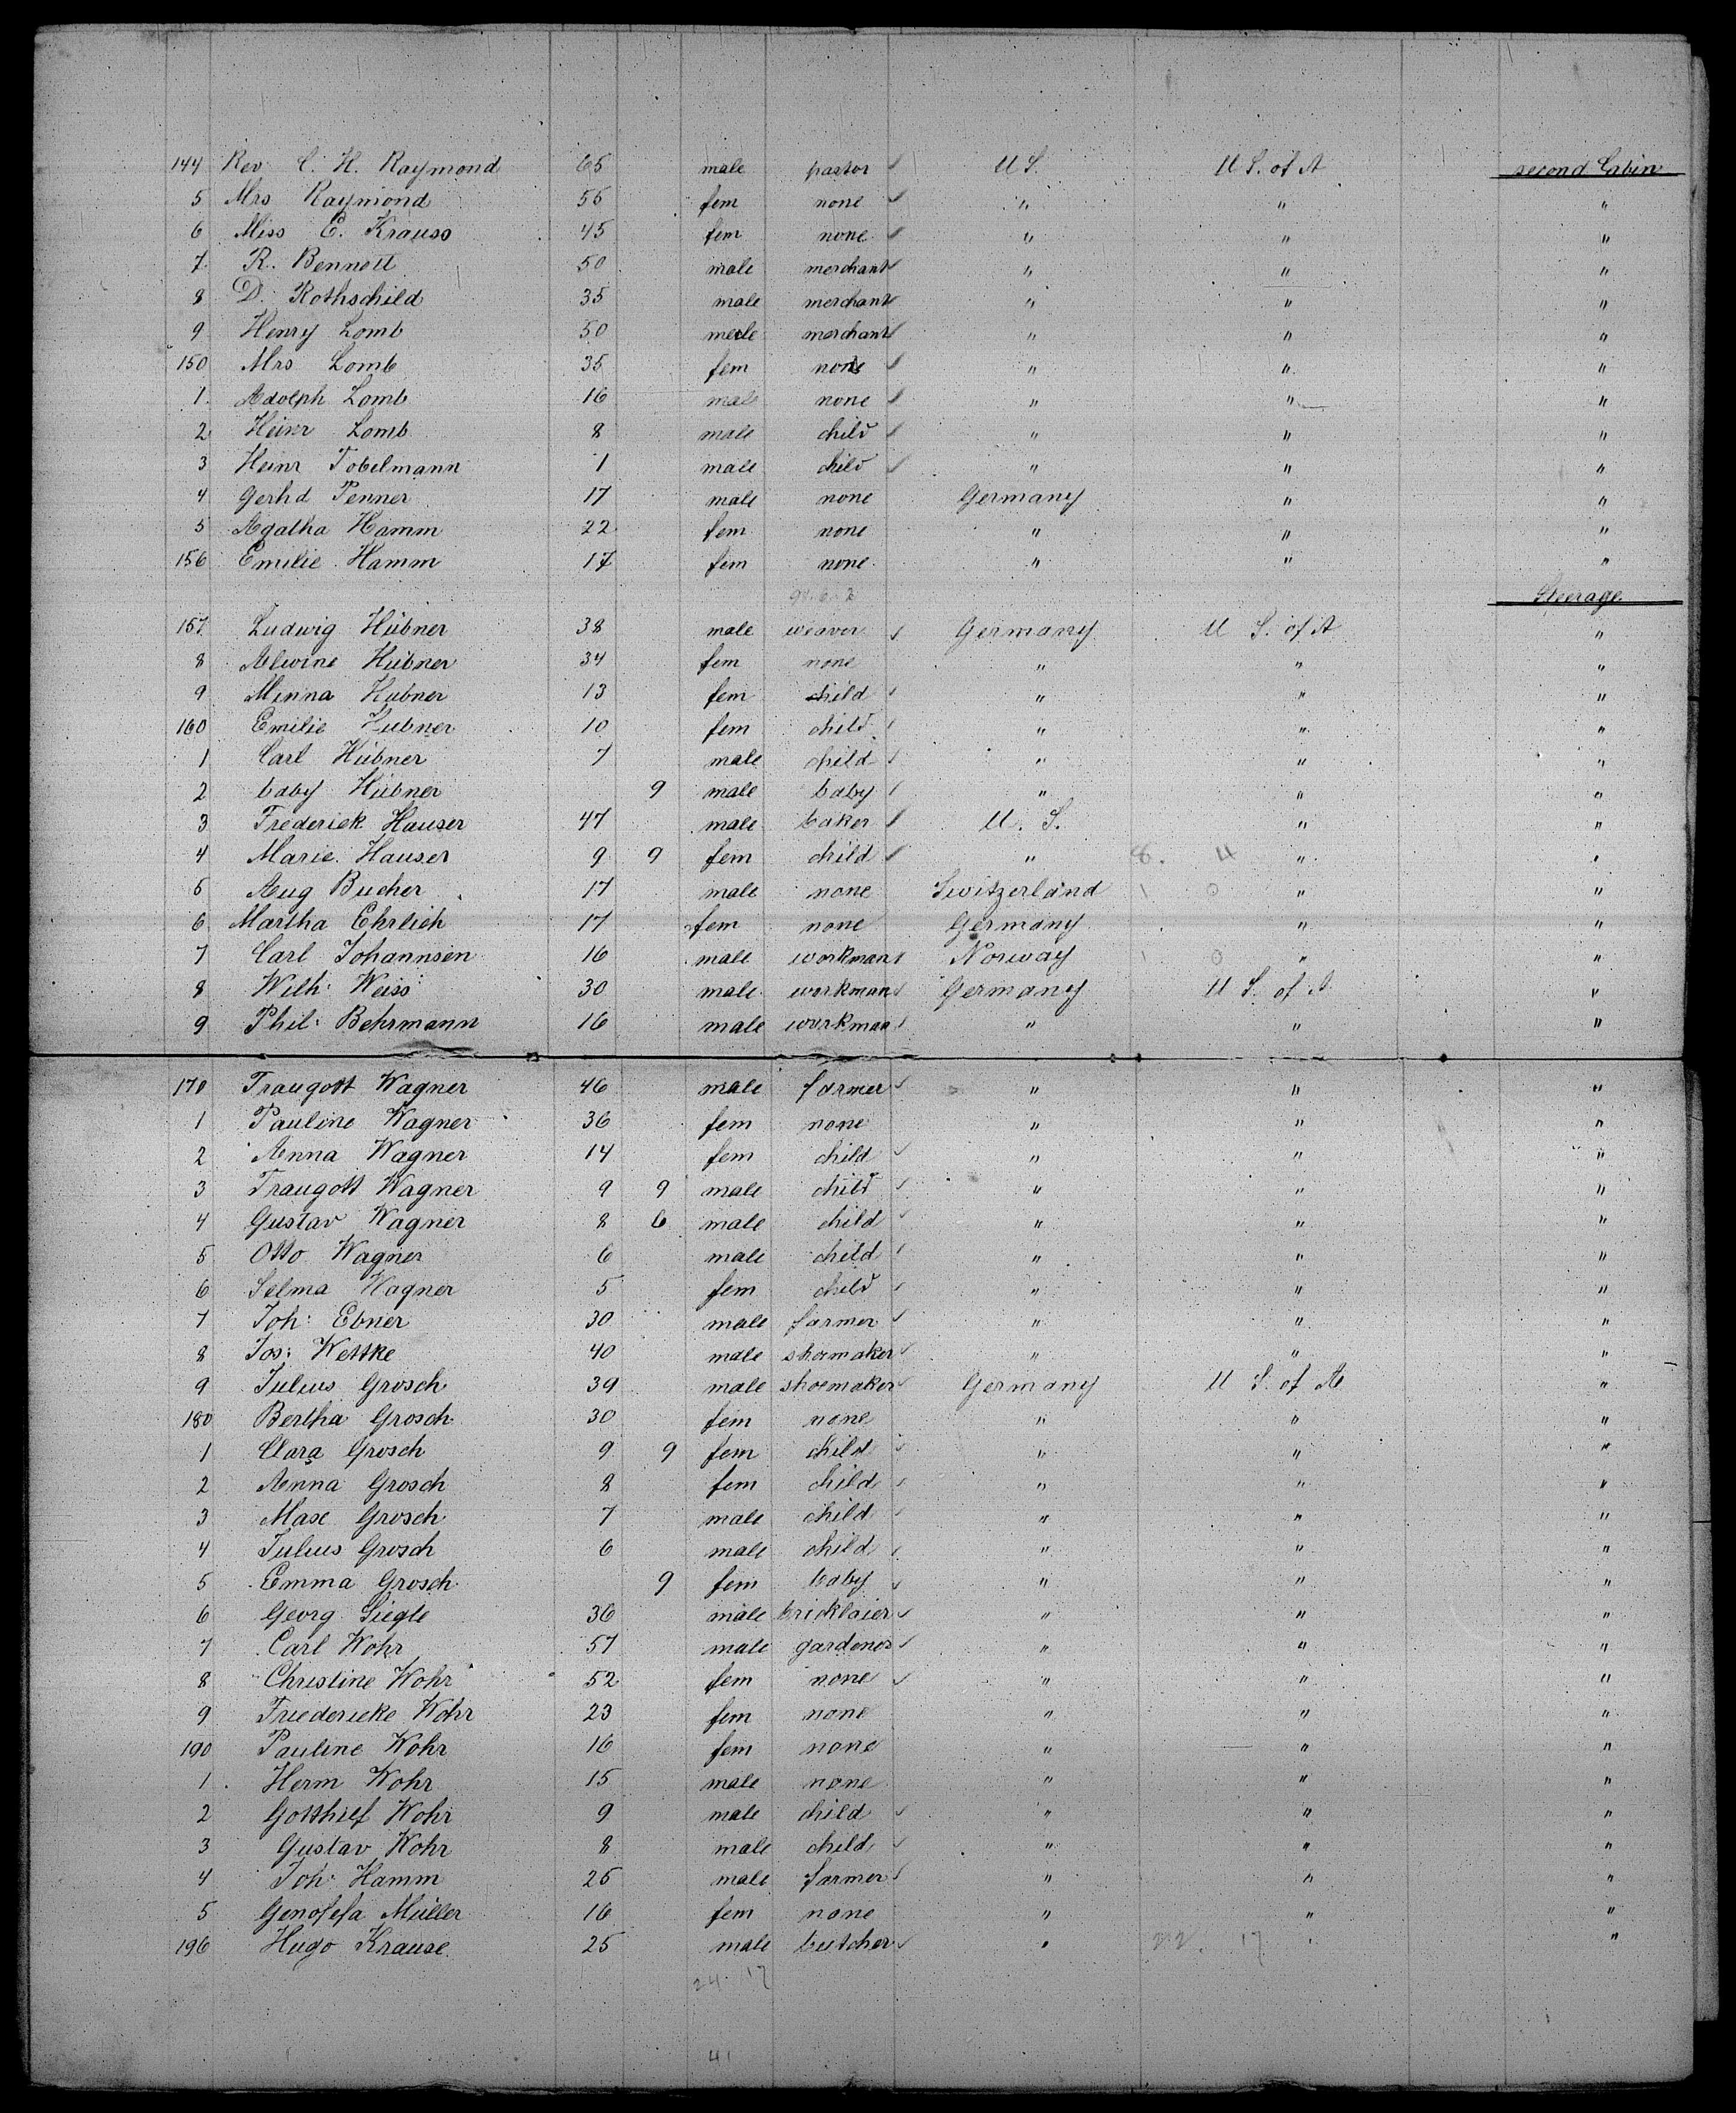 144 Rev. C. H. Raymond 65 male pastor U S. U S. of A second Cabin
5 Mrs Raymond 55 fem none " " "
6 Miss E. Krauss 45 fem none " " "
7. R. Bennett 50 male merchant " " "
8 D. Rothschild 35 male merchant " " "
9 Henry Lomb 50 male merchant " " "
150 Mrs Lomb 35 fem none " " "
1. Adolph Lomb 16 male none " " "
2 Heinr Lomb 8 male child " " "
3 Heinr Tobelmann 1 male child " " "
4 Gerhd Penner 17 male none Germany " "
5 Agatha Hamm 22 fem none " " "
156 Emilie Hamm 17 fem none " " "
Steerage
157 Ludwig Hübner 38 male weaver Germany U S. of A "
8 Alwine Hübner 34 fem none " " "
9 Minna Hübner 13 fem child " " "
160 Emilie Hubner 10 fem child " " "
1 Carl Hübner 7 male child " " "
2 baby Hübner 9 male baby " " "
3 Frederick Hauser 47 male baker U. S. " "
4 Marie Hauser 9 9 fem child " 8. 4 " "
5 Aug Bucher 17 male none Switzerland 1 0 " "
6 Martha Ehrlich 17 fem none Germany " "
7 Carl Johannsen 16 male workman Norway 1 0 " "
8 Wilh: Weiss 30 male workman Germany U S. of A "
9 Phil: Behrmann 16 male workman " " "
170 Traugott Wagner 46 male farmer " " "
1 Pauline Wagner 36 fem none " " "
2 Anna Wagner 14 fem child " " "
3 Traugott Wagner 9 9 male child " " "
4 Gustav Wagner 8 6 male child " " "
5 Otto Wagner 6 male child " " "
6 Selma Wagner 5 fem child " " "
7 Joh: Ebner 30 male farmer " " "
8 Jos: Wettke 40 male shoemaker " " "
9 Julius Grosch 39 male shoemaker Germany U S. of A "
180 Bertha Grosch 30 fem none " " "
1 Clara Grosch 9 9 fem child " " "
2 Anna Grosch 8 fem child " " "
3 Max Grosch 7 male child " " "
4 Julius Grosch 6 male child " " "
5 Emma Grosch 9 fem baby " " "
6 Georg Siegle 36 male bricklaier " " "
7 Carl Wohr 57 male gardener " " "
8 Christine Wohr 52 fem none " " "
9 Friedericke Wohr 23 fem none " " "
190 Pauline Wohr 16 fem none " " "
1 Herm Wohr 15 male none " " "
2 Gotthilf Wohr 9 male child " " "
3 Gustav Wohr 8 male child " " "
4 Joh: Hamm 26 male farmer " " "
5 Genofefa Müller 16 fem none " " "
196 Hugo Krause 25 male butcher " 22. 17 " "
24 17
41